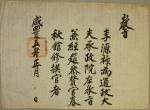 敎旨
李源祚爲通政大
夫承政院左承旨
兼經筵參贊官春
秋館修撰官者
咸豊五年正月　日